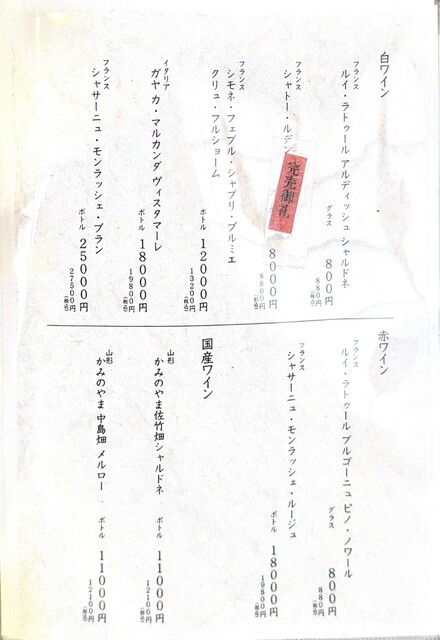 白ワイン
フランス
ルイ・ラトゥール アルディッシュ シャルドネ
グラス 800円
880円(税込)
フランス
シャトー・ルデン
完売御礼
8000円
8800円(税込)
フランス
シモネ・フェブル・シャブリ・プルミエ
クリュ・フルショーム
ボトル 12000円
13200円(税込)
イタリア
ガヤ カ・マルカンダ ヴィスタマーレ
ボトル 18000円
19800円(税込)
フランス
シャサーニュ・モンラッシェ・ブラン
ボトル 25000円
27500円(税込)
赤ワイン
フランス
ルイ・ラトゥール ブルゴーニュ ピノ・ノワール
グラス 800円
880円(税込)
フランス
シャサーニュ・モンラッシェ・ルージュ
ボトル 18000円
19800円(税込)
国産ワイン
山形
かみのやま佐竹畑シャルドネ
ボトル 11000円
12100円(税込)
山形
かみのやま 中島畑 メルロー
ボトル 11000円
12100円(税込)